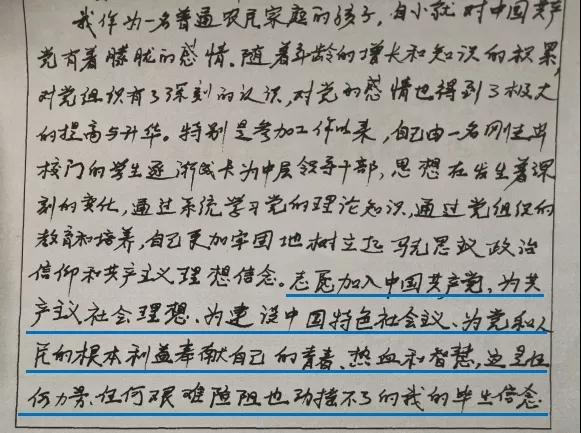 我作为一名普通农民家庭的孩子,自小就对中国共产
党有着朦胧的感情。随着年龄的增长和知识的积累,
对党组识有了深刻的认识,对党的感情也得到了极大
的提高与升华。特别是参加工作以来,自己由一名刚走出
校门的学生逐渐成长为中层领导干部,思想在发生着深
刻的变化,通过系统学习党的理论知识,通过党组织的
教育和培养,自己更加牢固地树立起马克思主义政治
信仰和共产主义理想信念。志愿加入中国共产党,为共
产主义社会理想、为建设中国特色社会主义、为党和人
民的根本利益奉献自己的青春、热血和智慧,这是任
何力势、任何艰难险阻也动摇不了的我的毕生信念